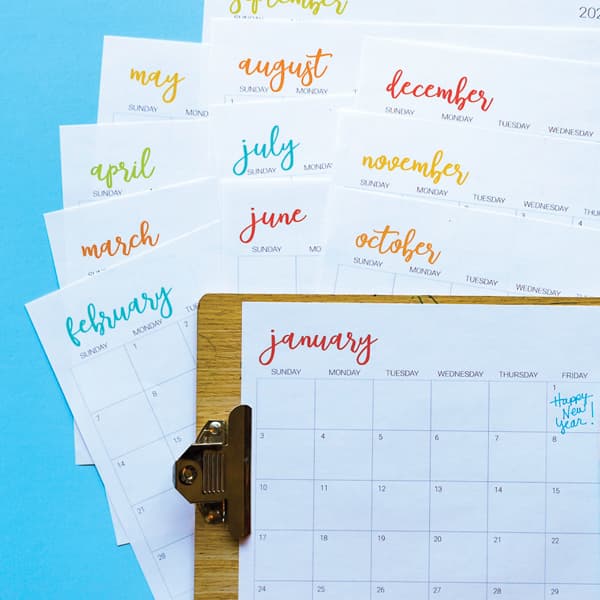 september
202
may
SUNDAY MONDAY
august
SUNDAY MONDAY
1
december
SUNDAY MONDAY TUESDAY WEDNESDAY
april
SUNDAY
july
SUNDAY MONDAY
november
SUNDAY MONDAY TUESDAY WEDNESDAY
march
SUNDAY
june
SUNDAY MONDAY
october
SUNDAY MONDAY TUESDAY WEDNESDAY
february
SUNDAY MONDAY TUESDAY
1 2
7 8
14 15
21
28
january
SUNDAY MONDAY TUESDAY WEDNESDAY THURSDAY FRIDAY
1
Happy
New
Year!
3 4 5 6 7 8
10 11 12 13 14 15
17 18 19 20 21 22
24 25 26 27 28 29